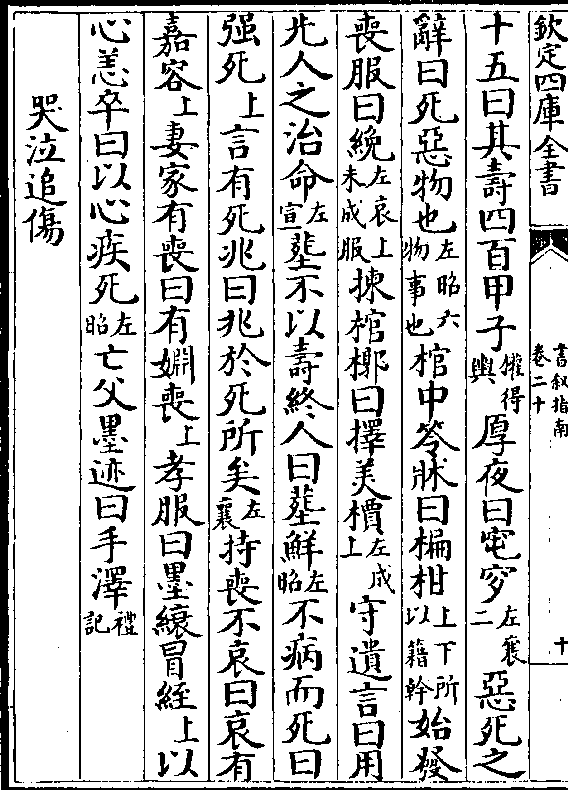 欽定四庫全書 書叙指南 卷二十 十
十五曰其壽四百甲子權得輿厚夜曰窀穸左襄二惡死之
辭曰死惡物也左昭六物事也棺中笭牀曰楄柑上下所以籍幹始發
喪服曰絻左哀上未成服揀棺槨曰擇美檟左成上守遺言曰用
先人之治命左宣塟不以壽終人曰塟鮮左昭不病而死曰
强死上言有死兆曰兆於死所矣左襄持喪不哀曰哀有
嘉容上妻家有喪曰有姻喪上孝服曰墨縗冒絰上以
心恙卒曰以心疾死左昭亡父墨迹曰手澤禮記
哭泣追傷